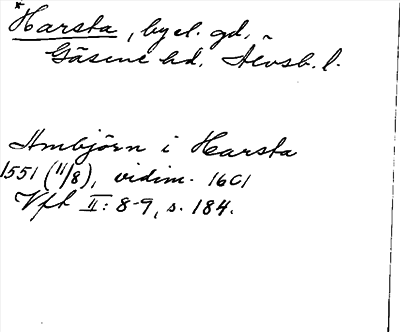 *Harsta, by el. gd,
Gäsene hd, Älvsb. l.
Ambjörn i Harsta
1551 (11/8), vidim. 1601
Vft II: 8-9, s. 184.